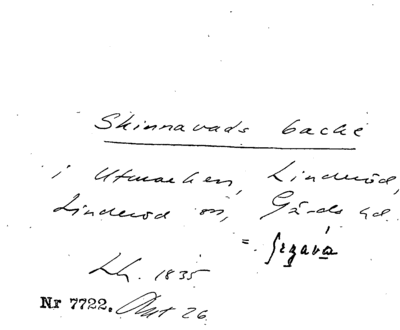 Skinnavads backe
i Utmarken, Linderöd,
Linderöd sn, Gärds hd.
=
Lh. 1835
Nr 7722. Akt 26